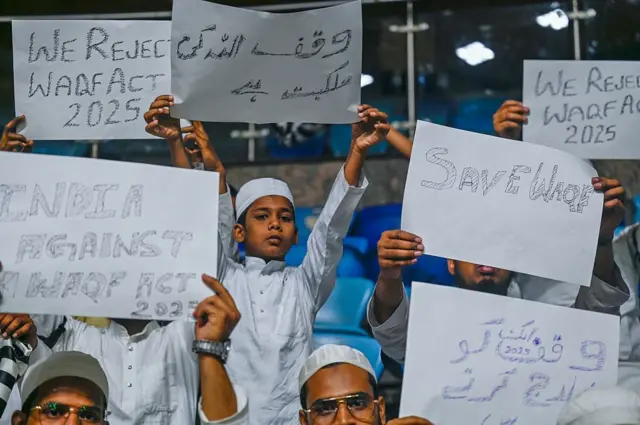 WE REJEC
WAQF ACT
2025
وقف اللہ کی
ملکیت ہے
WE REJEC
WAQF AC
2025
INDIA
AGAINST
WAQF ACT
2025
SAVE WAQF
وقف ایکٹ 2025 کو
خارج کرتے